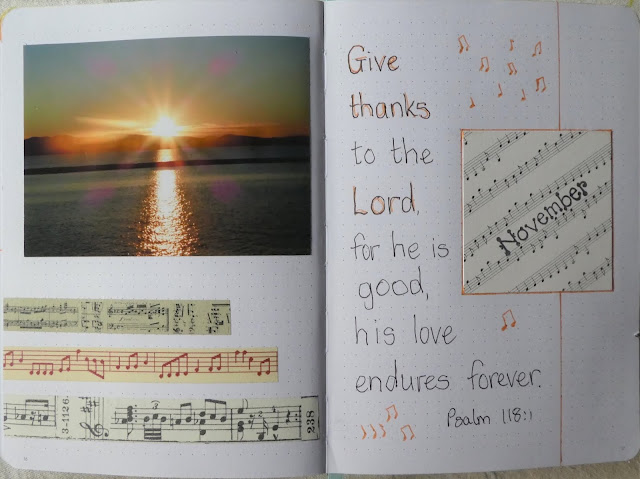 3-1126.
238
Give
thanks
to the
Lord,
for he is
good,
his love
endures forever.
Psalm 118:1
November